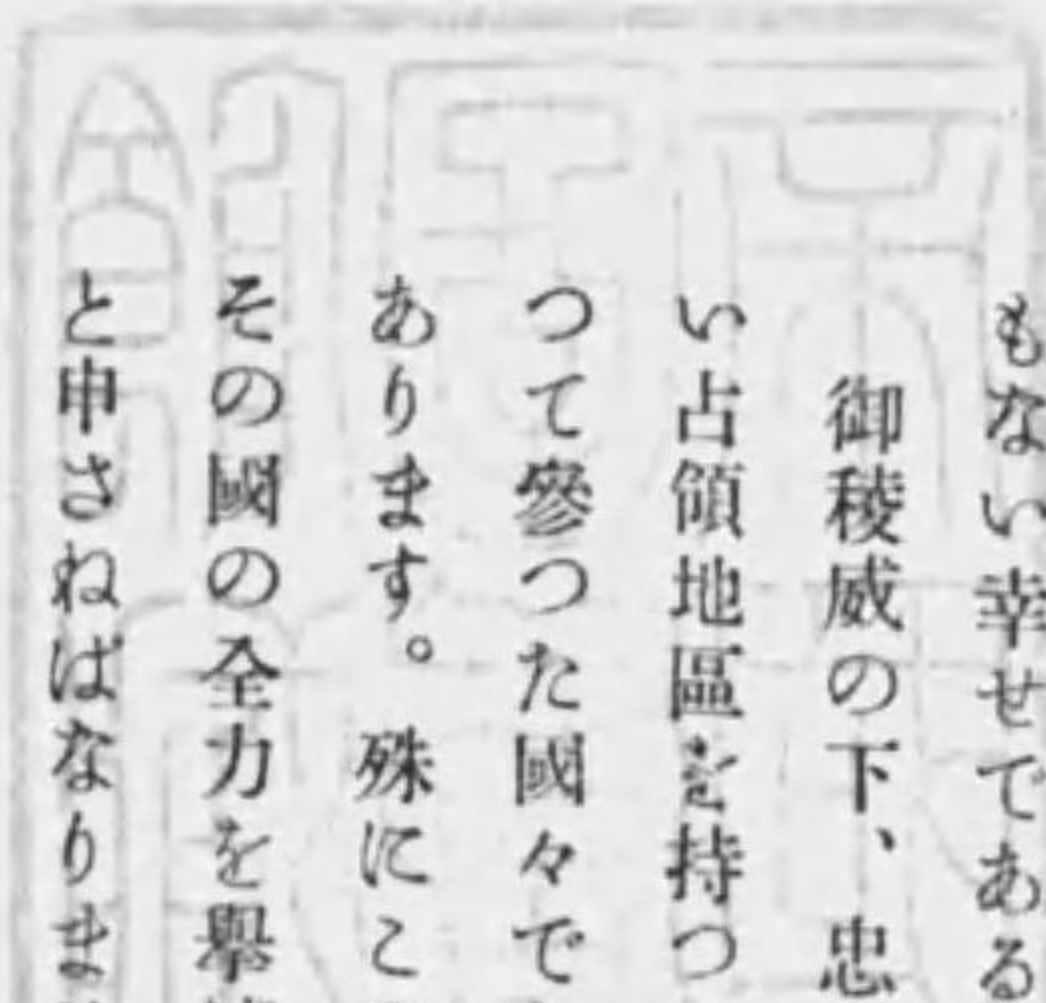 もない幸せである
御稜威の下、忠
い占領地區を持つ
つて參つた國々で
あります。殊にこ
その國の全力を擧
と申さねばなりま